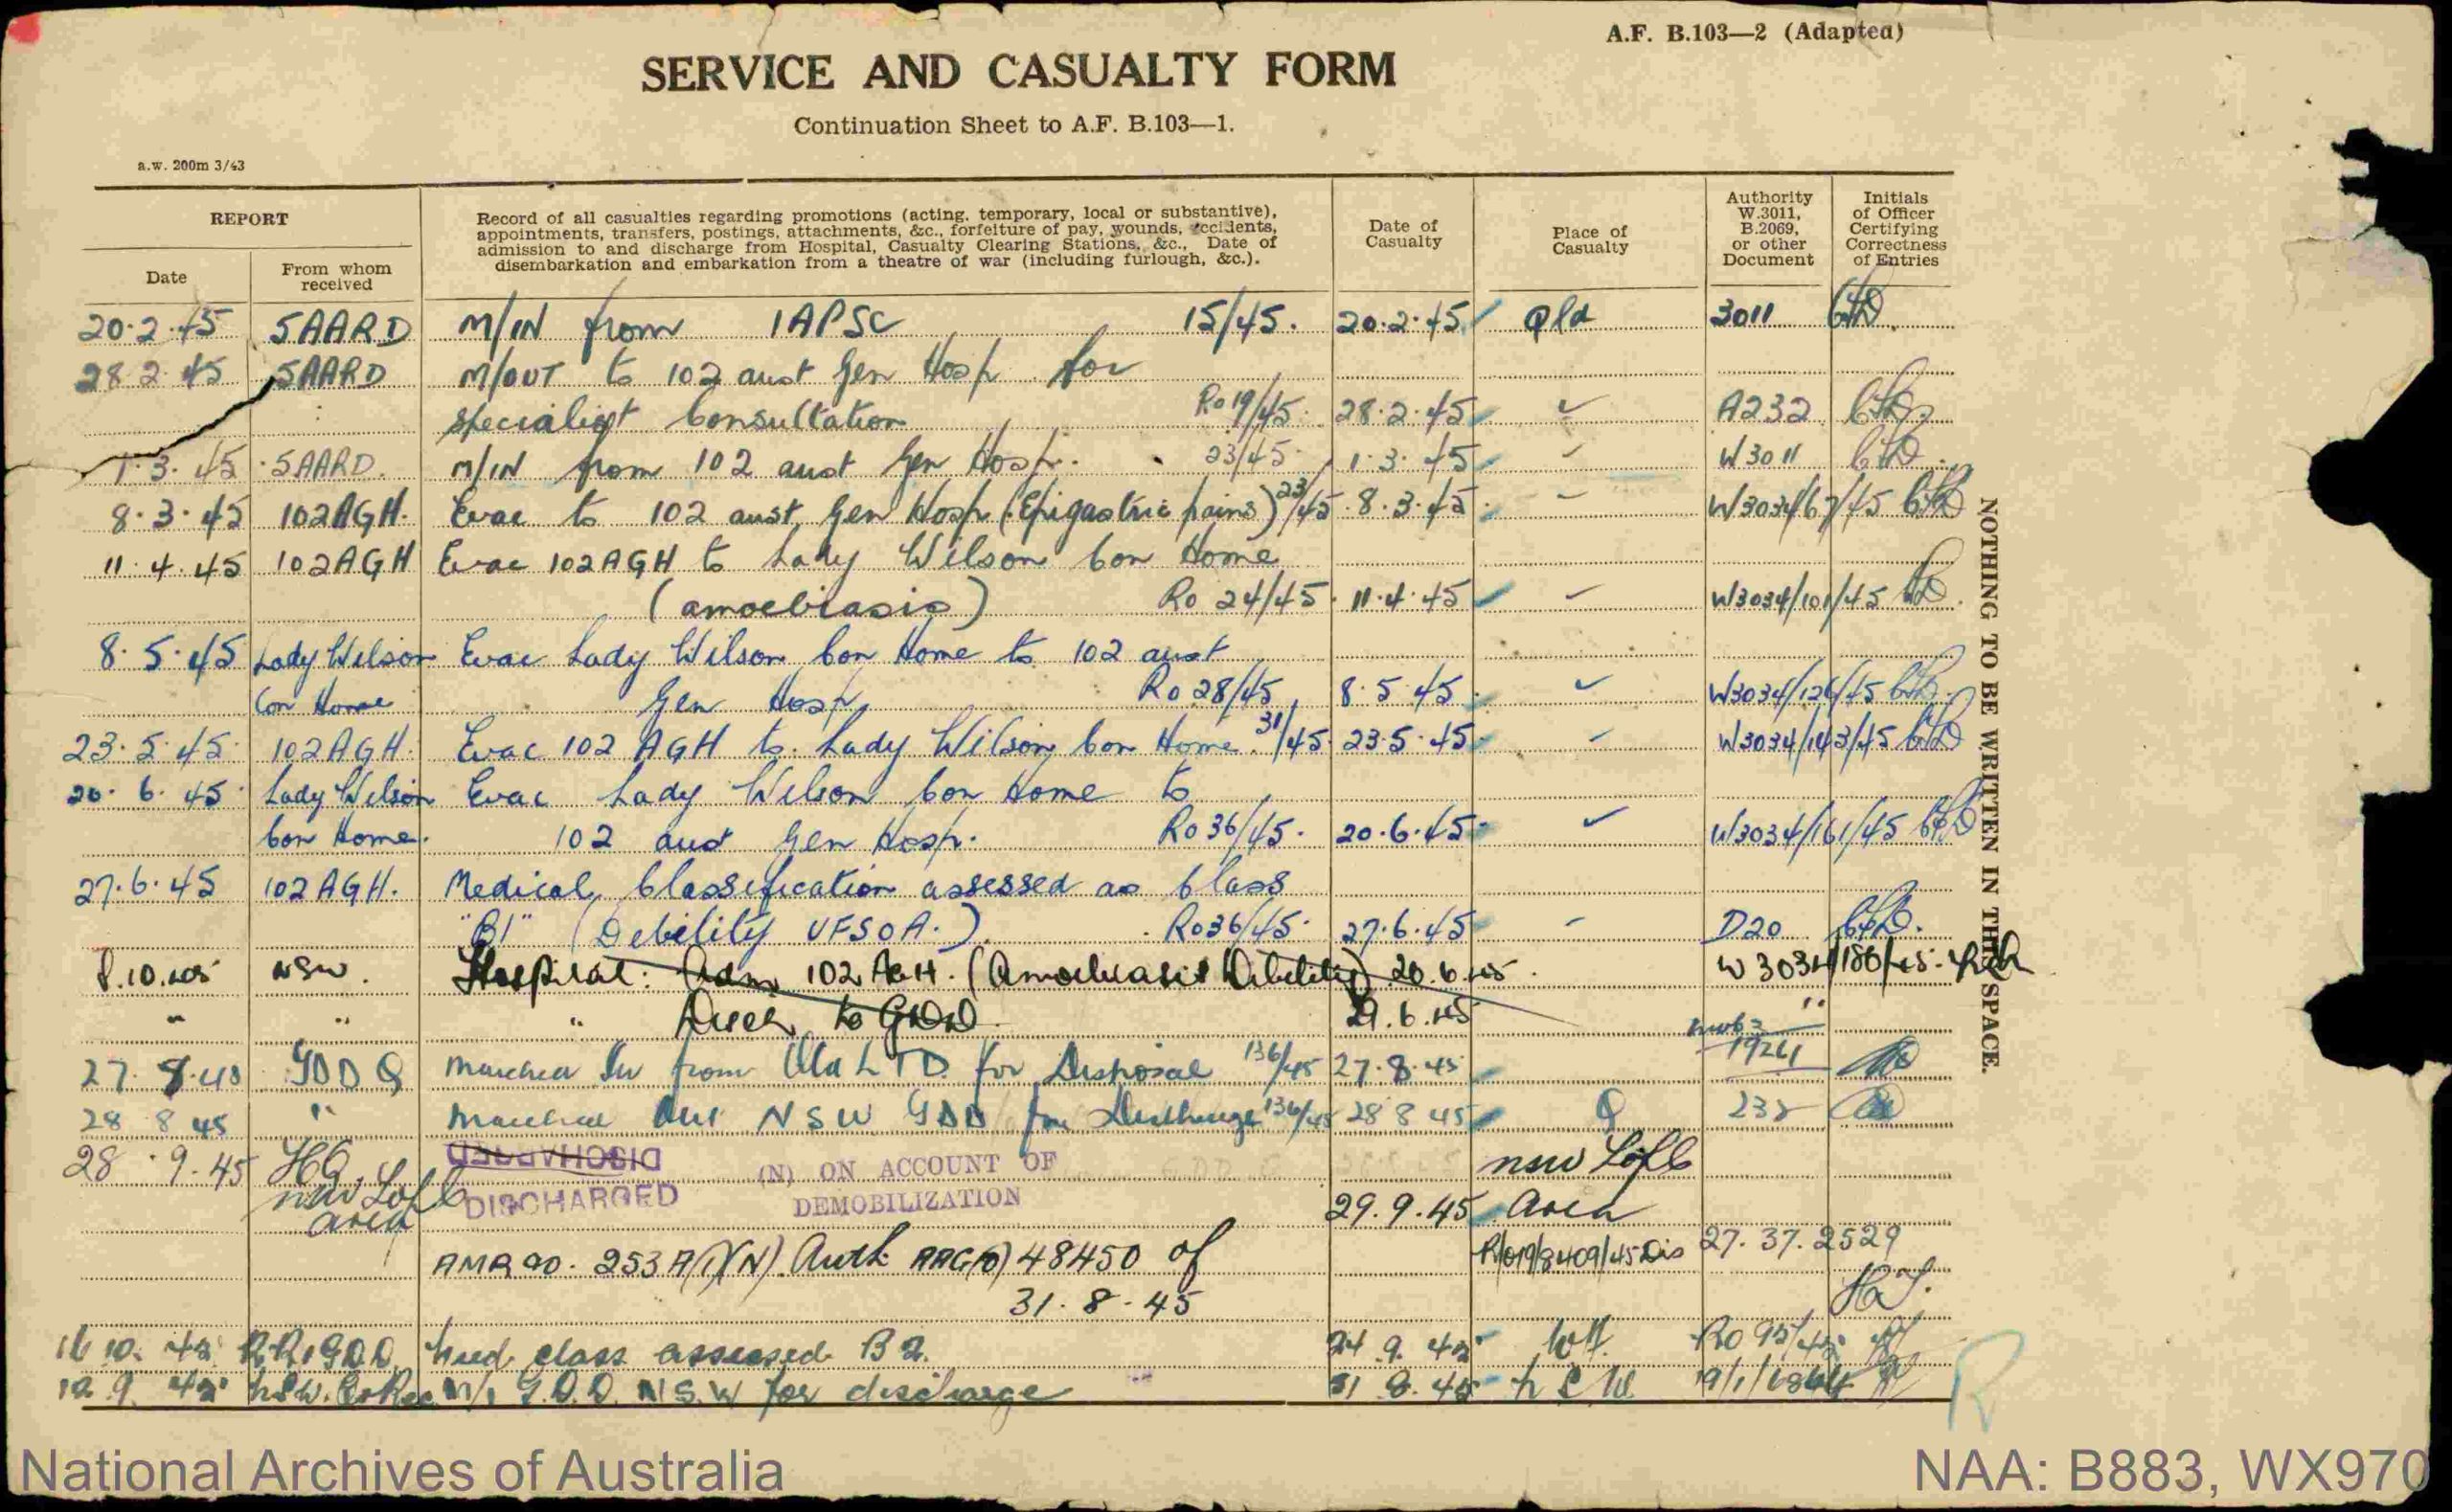 A.F. B.103—2 (Adapted)
SERVICE AND CASUALTY FORM
Continuation Sheet to A.F. B.103—1.
a.w. 200m 3/43
REPORT
Date
From whom received
Record of all casualties regarding promotions (acting, temporary, local or substantive),
appointments, transfers, postings, attachments, &c., forfeiture of pay, wounds, accidents,
admission to and discharge from Hospital, Casualty Clearing Stations, &c., Date of
disembarkation and embarkation from a theatre of war (including furlough, &c.).
Date of Casualty
Place of Casualty
Authority W.3011, B.2069, or other Document
Initials of Officer Certifying Correctness of Entries
20.2.45 5AARD M/IN from 1APSC 15/45. 20.2.45 Qld 3011
28.2.45 5AARD M/OUT to 102 aust Gen Hosp for
specialist Consultation Ro 19/45. 28.2.45 A232
1.3.45 5AARD. M/IN from 102 aust Gen Hosp. 23/45 1.3.45 W3011
8.3.45 102AGH. Evac to 102 aust Gen Hosp (Epigastric pains) 23/45 8.3.45 W3034/67/45
11.4.45 102AGH Evac 102AGH to Lady Wilson Con Home
(amoebiasis) Ro 24/45 11.4.45 W3034/101/45
8.5.45 Lady Wilson Evac Lady Wilson Con Home to 102 aust
Con Home Gen Hosp. Ro 28/45 8.5.45 W3034/126/45
23.5.45 102AGH. Evac 102 AGH to Lady Wilson Con Home 31/45 23.5.45 W3034/143/45
20.6.45 Lady Wilson Evac Lady Wilson Con Home to
Con Home. 102 aust Gen Hosp. Ro 36/45. 20.6.45 W3034/161/45
27.6.45 102AGH. Medical Classification assessed as Class
"B1" (Debility UFSOA.) Ro36/45. 27.6.45 D20
8.10.45 NSW. Hospital: Adm 102 AGH. (Amoebiasis Debility) 20.6.45. W 3034/180/45
" " " Disch to GDD 29.6.45 "
27.8.45 GDD Q Marched In from Qld LTD for Disposal 136/45 27.8.45 19261
28 8 45 " Marched Out NSW GDD for Discharge 136/45 28 8 45 Q 232
28.9.45 HQ, NSW LofC area DISCHARGED NSW LofC
DISCHARGED (N) ON ACCOUNT OF DEMOBILIZATION 29.9.45 Area
AMR&O. 253A(1)(N) Auth AAG(O) 48450 of 27.37.2529
31.8.45
16 10. 45 RR.GDD. Med. class assessed B2. 24.9.45 Ro 95/45
12 9. 45 M/I G.D.D. N.S.W for discharge 31 8.45 N S W
NOTHING TO BE WRITTEN IN THIS SPACE.
National Archives of Australia
NAA: B883, WX970